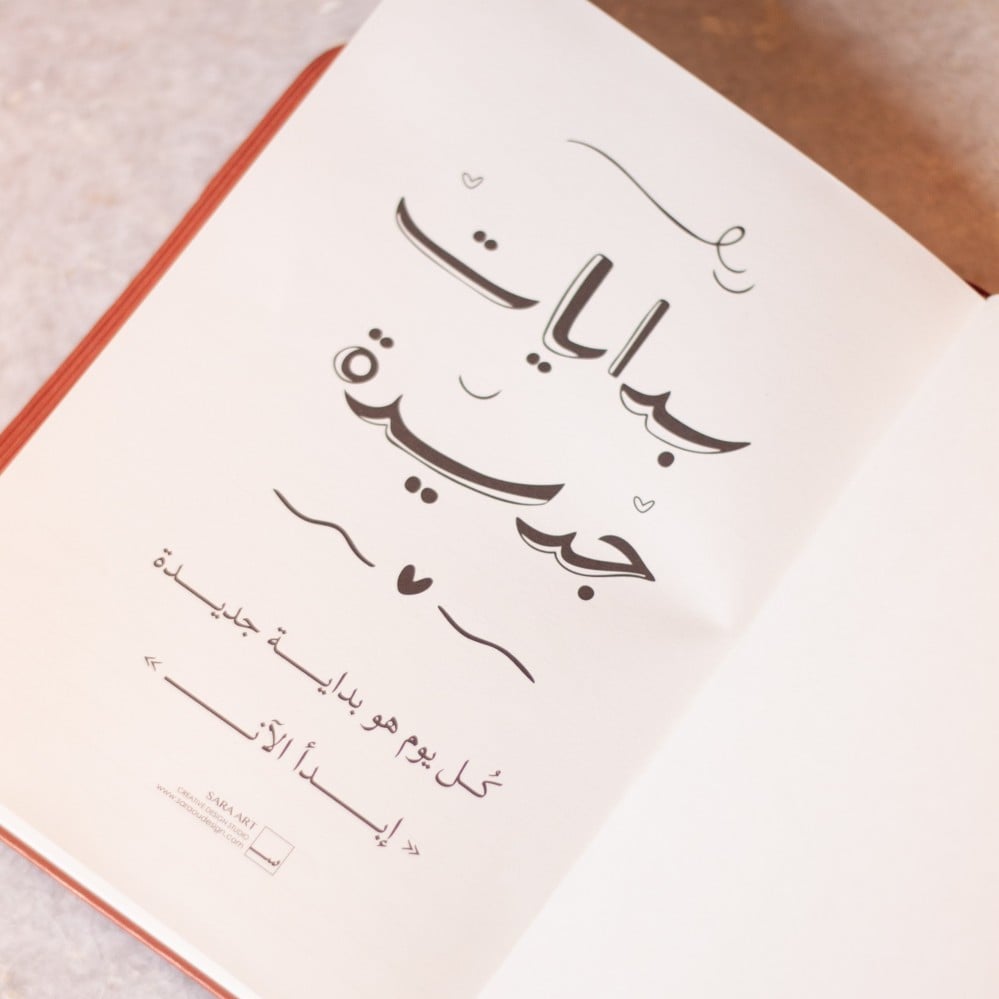 بدايات
جديدة
كُل يوم هو بداية جديدة
« إبدأ الآن »
SARA ART
CREATIVE DESIGN STUDIO
www.saraoudesign.com